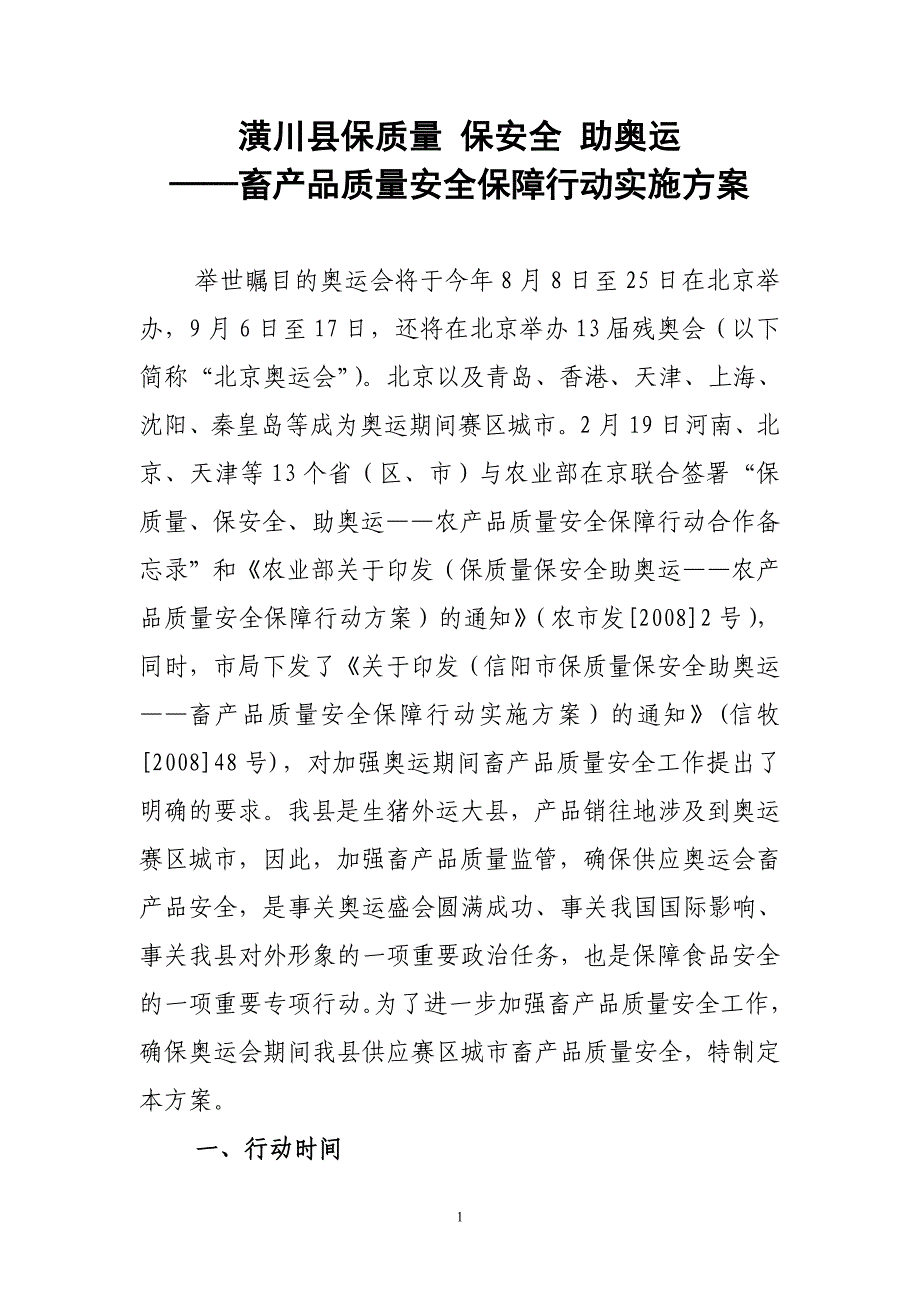 潢川县保质量 保安全 助奥运
——畜产品质量安全保障行动实施方案
举世瞩目的奥运会将于今年8月8日至25日在北京举
办，9月6日至17日，还将在北京举办13届残奥会（以下
简称“北京奥运会”）。北京以及青岛、香港、天津、上海、
沈阳、秦皇岛等成为奥运期间赛区城市。2月19日河南、北
京、天津等13个省（区、市）与农业部在京联合签署“保
质量、保安全、助奥运——农产品质量安全保障行动合作备
忘录”和《农业部关于印发（保质量保安全助奥运——农产
品质量安全保障行动方案）的通知》（农市发[2008]2号），
同时，市局下发了《关于印发（信阳市保质量保安全助奥运
——畜产品质量安全保障行动实施方案）的通知》（信牧
[2008]48号），对加强奥运期间畜产品质量安全工作提出了
明确的要求。我县是生猪外运大县，产品销往地涉及到奥运
赛区城市，因此，加强畜产品质量监管，确保供应奥运会畜
产品安全，是事关奥运盛会圆满成功、事关我国国际影响、
事关我县对外形象的一项重要政治任务，也是保障食品安全
的一项重要专项行动。为了进一步加强畜产品质量安全工作，
确保奥运会期间我县供应赛区城市畜产品质量安全，特制定
本方案。
一、行动时间
1